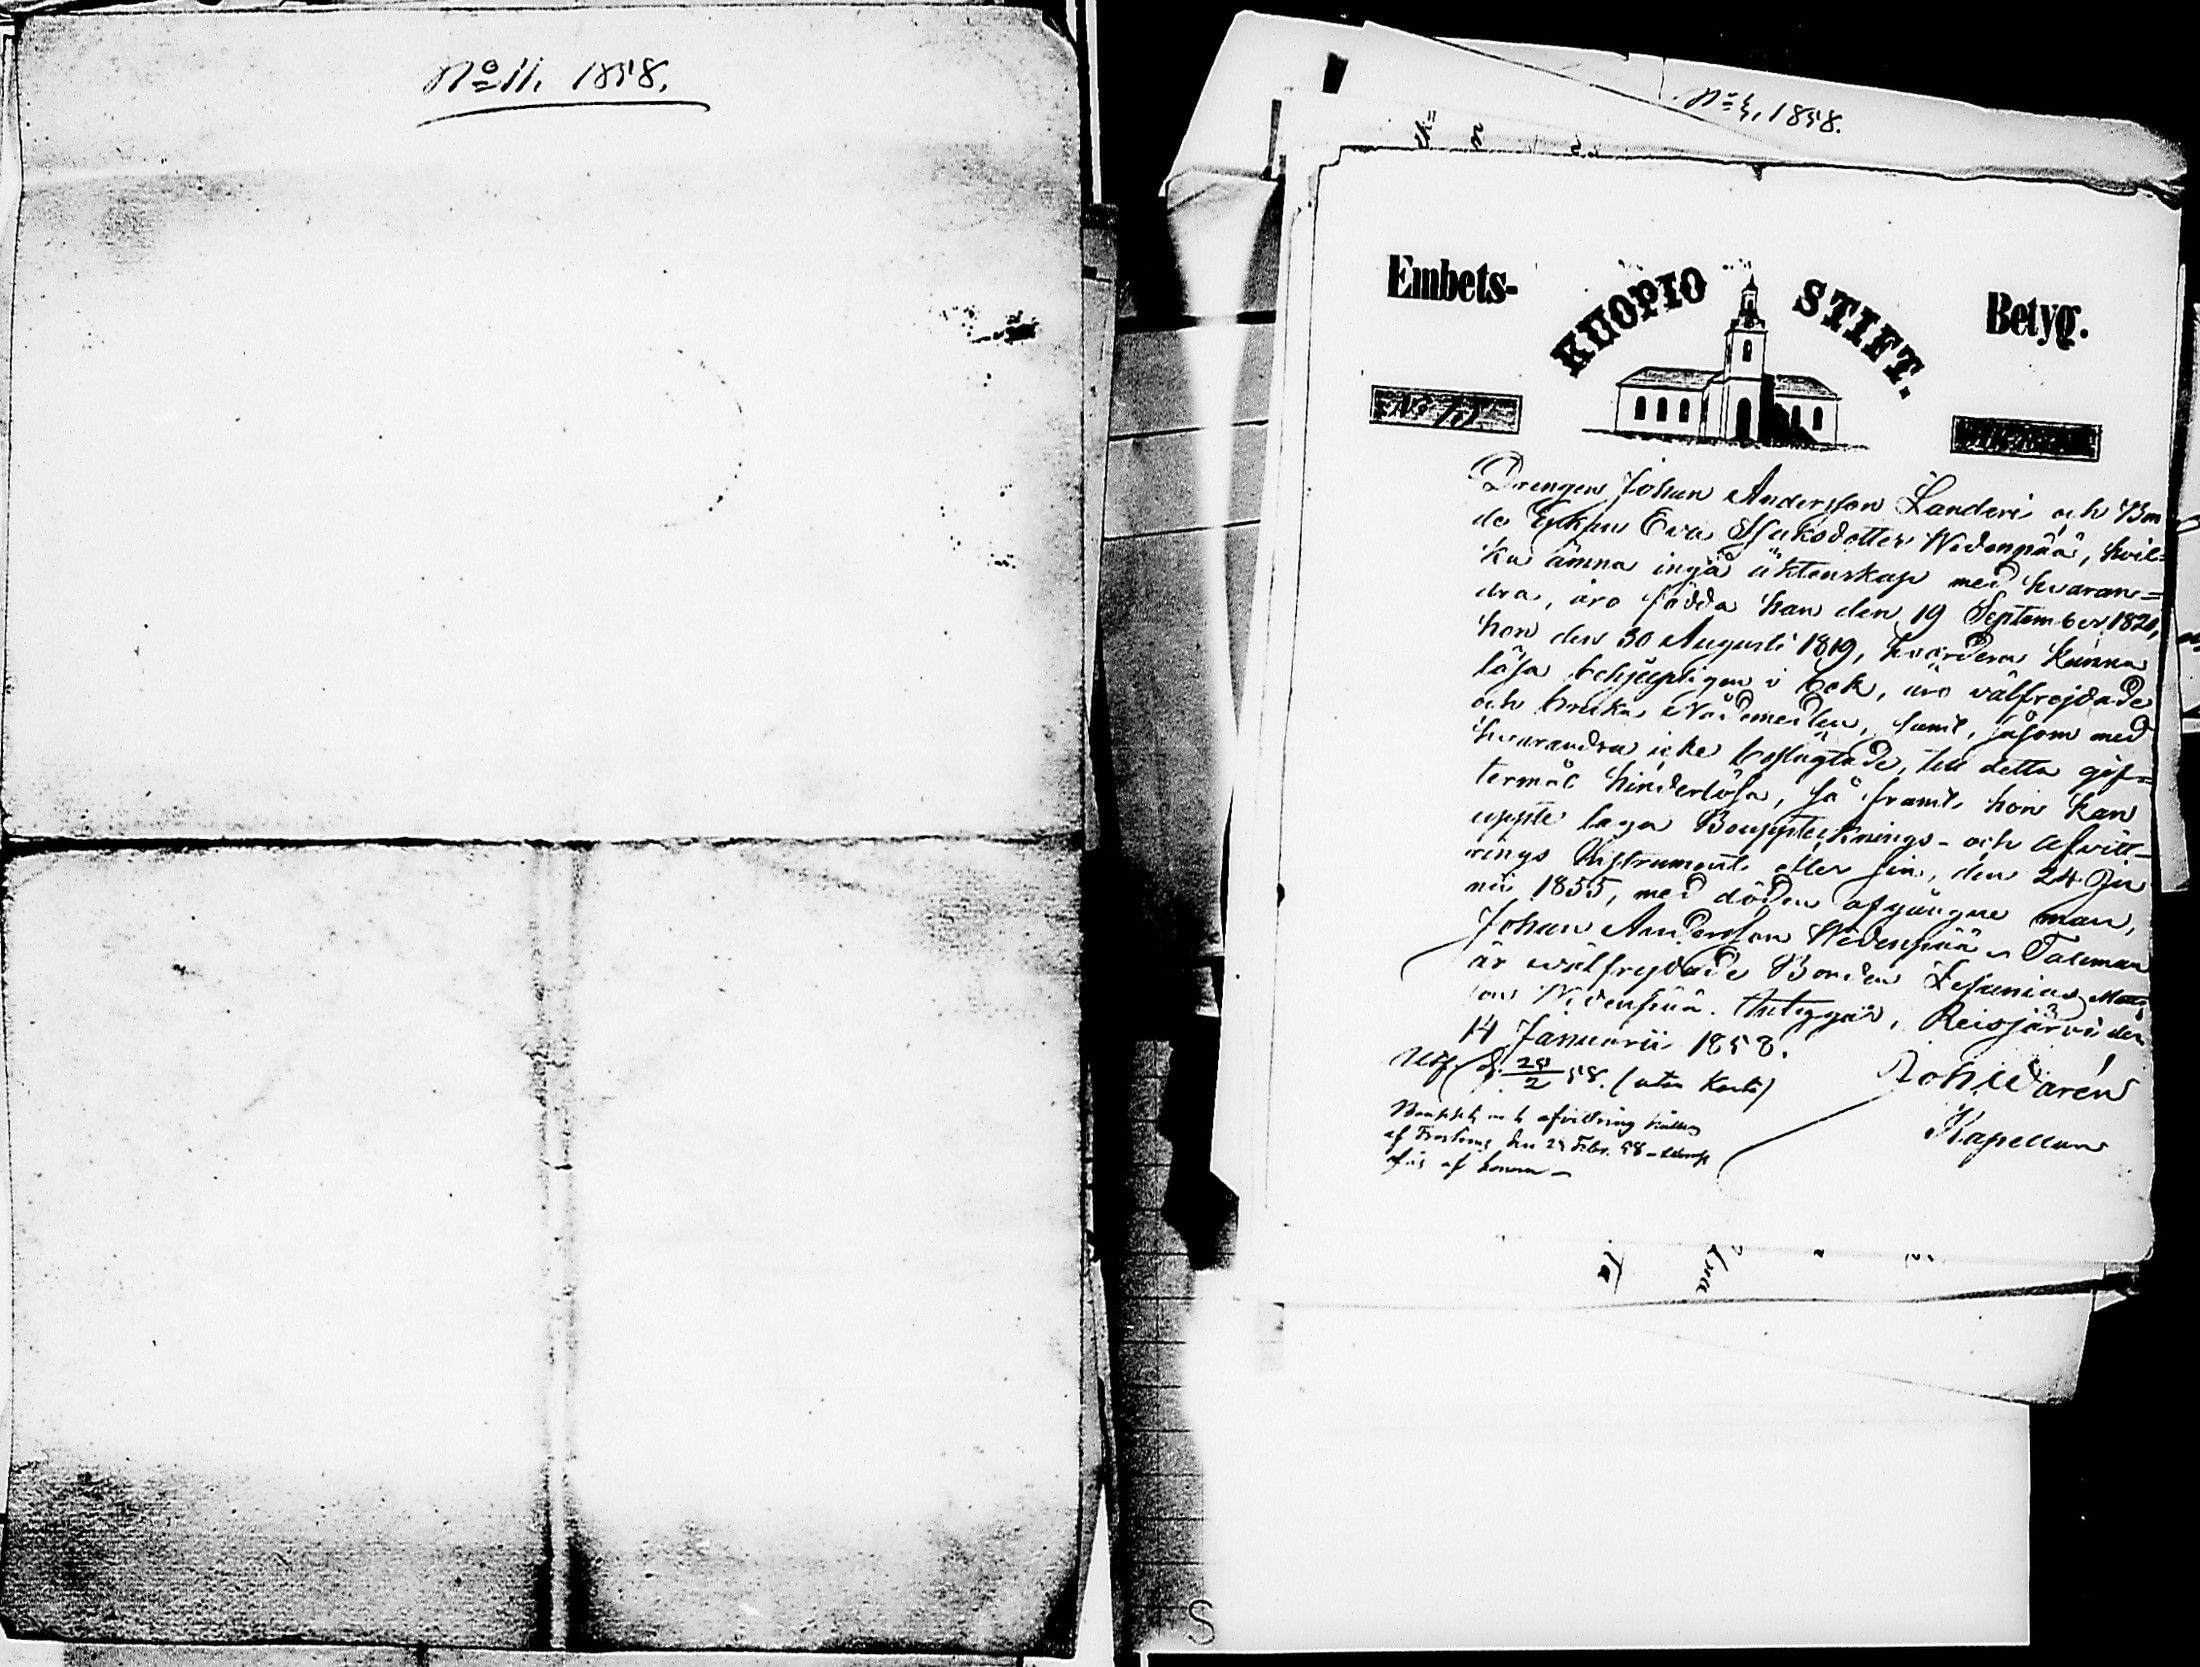 No 11. 1858.
No 5, 1858.
Embets- KUOPIO STIFT. Betyg.
No
Drengen Johan Andersson Landeri och Bon
de Enkan Eva Isaksdotter Wedenpää, hvil=
ka ämna ingå äktenskap med hvaran=
dra, äro födda han den 19 September 1821,
hon den 30 Augusti 1819, hvardera kunna
läsa behjelpligen i bok, äro välfrejdade
och bruka Nådemedlen, samt, såsom med
hvarandra icke beslägtade, till detta gif=
termål hinderlösa, så framt hon kan
uppte laga Bouppteknings- och afvitt-
rings Instrument efter sin, den 24 Ju
nii 1855, med döden afgångne man,
Johan Andersson Wedenpää. Taleman
är wälfrejdade Bonden Zefanias Matts
son Wedenpää. Antyggar, Reisjärvi den
14 Januarii 1858.
Joh Warén
Kapellan
Utf. d. 28/2 58. (utan Karta)
och afvittring hållen
af den 25 Febr. 58 -
af